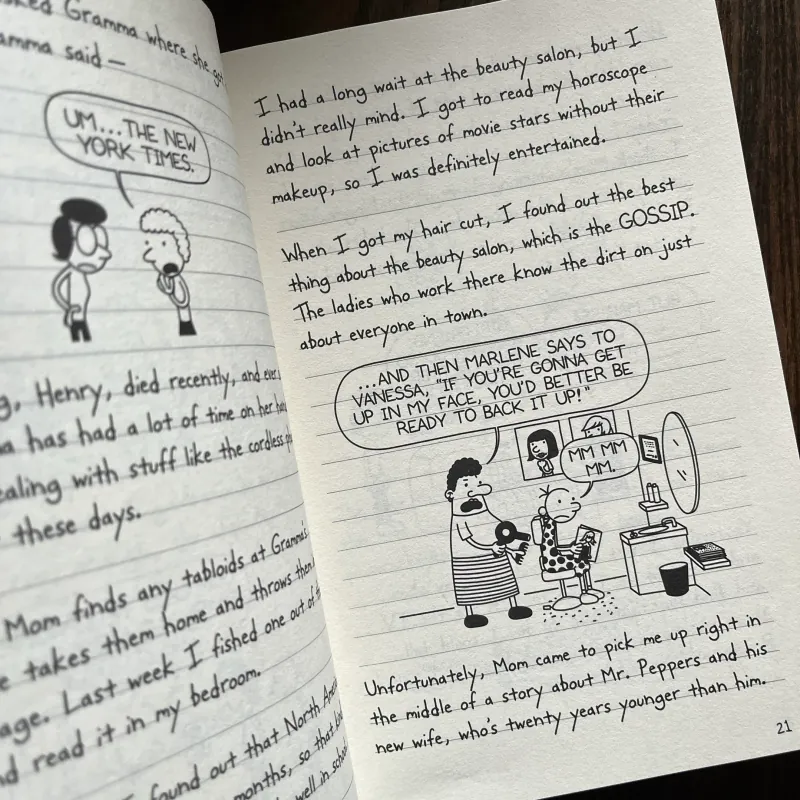 Gramma where she
said —
UM...THE NEW
YORK TIMES.
Henry, died recently, and
has had a lot of time on her
with stuff like the cordless
these days.
Mom finds any tabloids at Gramma's
takes them home and throws
Last week I fished one out of
read it in my bedroom.
found out that North
months, so that
well in
I had a long wait at the beauty salon, but I
didn't really mind. I got to read my horoscope
and look at pictures of movie stars without their
makeup, so I was definitely entertained.
When I got my hair cut, I found out the best
thing about the beauty salon, which is the GOSSIP.
The ladies who work there know the dirt on just
about everyone in town.
...AND THEN MARLENE SAYS TO
VANESSA, "IF YOU'RE GONNA GET
UP IN MY FACE, YOU'D BETTER BE
READY TO BACK IT UP!"
MM MM
MM.
Unfortunately, Mom came to pick me up right in
the middle of a story about Mr. Peppers and his
new wife, who's twenty years younger than him.
21